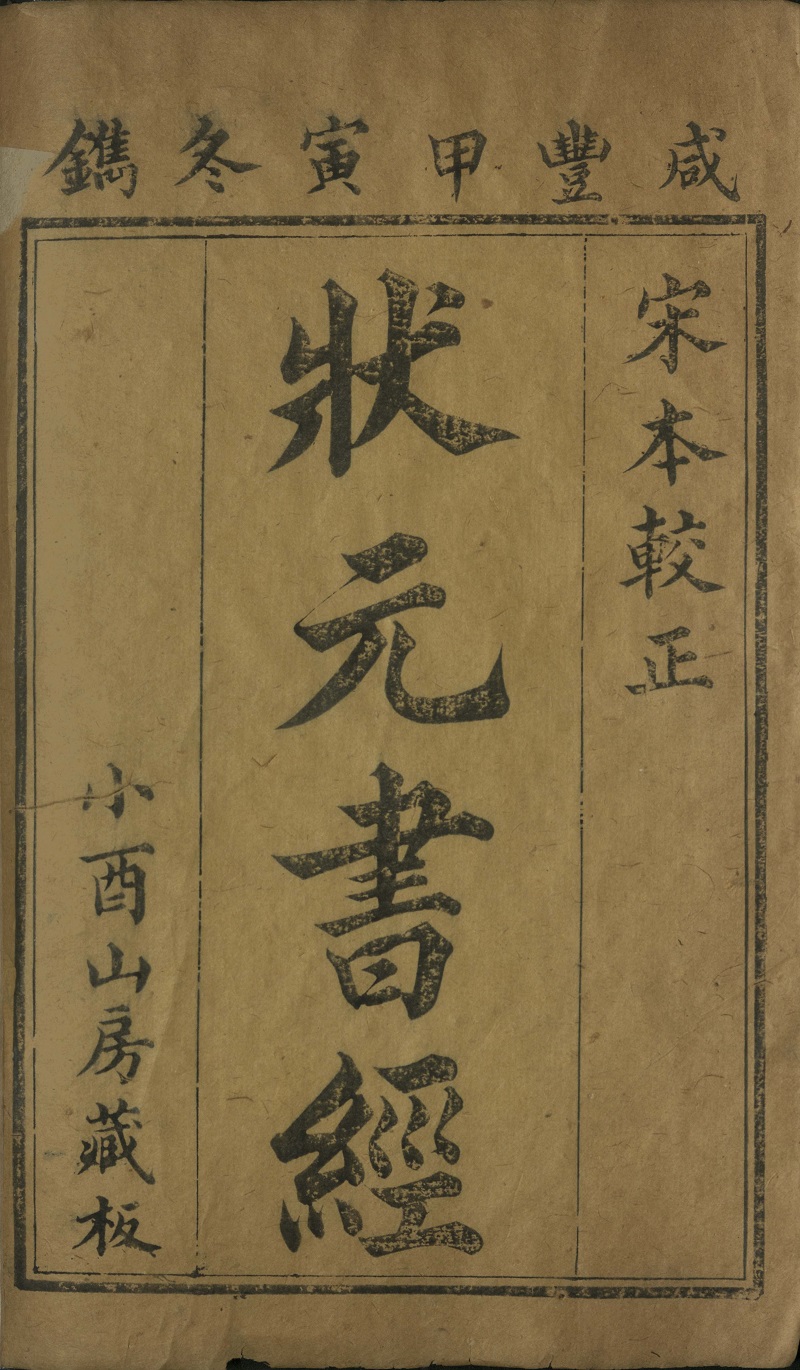 咸豐甲寅冬鐫
宋本較正
狀元書經
小酉山房藏板